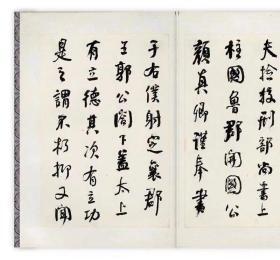 夫撿挍刑部尚書上
柱國魯郡開國公
顏真卿謹奉書
于右僕射定襄郡
王郭公閤下蓋太上
有立德其次有立功
是之謂不朽抑又聞